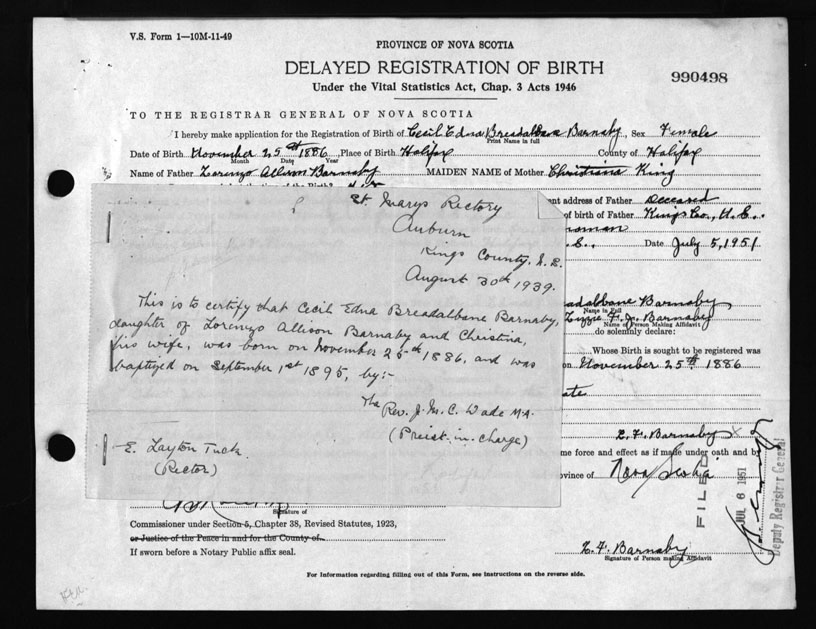 V.S. Form 1—10M-11-49
PROVINCE OF NOVA SCOTIA
DELAYED REGISTRATION OF BIRTH
990498
Under the Vital Statistics Act, Chap. 3 Acts 1946
TO THE REGISTRAR GENERAL OF NOVA SCOTIA
I hereby make application for the Registration of Birth of Cecil Edna Breadalbane Barnaby, Sex Female
Print Name in full
Date of Birth November 25th 1886, Place of Birth Halifax County of Halifax
Month Date Year
Name of Father Lorenzo Allison Barnaby MAIDEN NAME of Mother Christiana King
nt address of Father Deceased
of birth of Father Kings Co., N.S.
Date July 5, 1951
St. Marys Rectory
Auburn
Kings County. N.S.
August 30th 1939.
This is to certify that Cecil Edna Breadalbane Barnaby,
daughter of Lorenzo Allison Barnaby and Christina,
his wife, was born on November 25th 1886, and was
baptized on September 1st 1895, by:-
The Rev. J. M. C. Wade M.A.
(Preist-in-charge)
E. Layton Tuck.
(Rector)
adalbane Barnaby
Name in Full
Lizzie F. Barnaby
Name of Person Making Affidavit
do solemnly declare:
Whose Birth is sought to be registered was
on November 25th 1886
ate
L. F. Barnaby
me force and effect as if made under oath and by
ovince of Nova Scotia
FILED
JUL 6 1951
Deputy Registrar General
Signature of
Commissioner under Section 5, Chapter 38, Revised Statutes, 1923,
or Justice of the Peace in and for the County of
If sworn before a Notary Public affix seal.
L. F. Barnaby
Signature of Person making Affidavit
For information regarding filling out of this Form, see instructions on the reverse side.